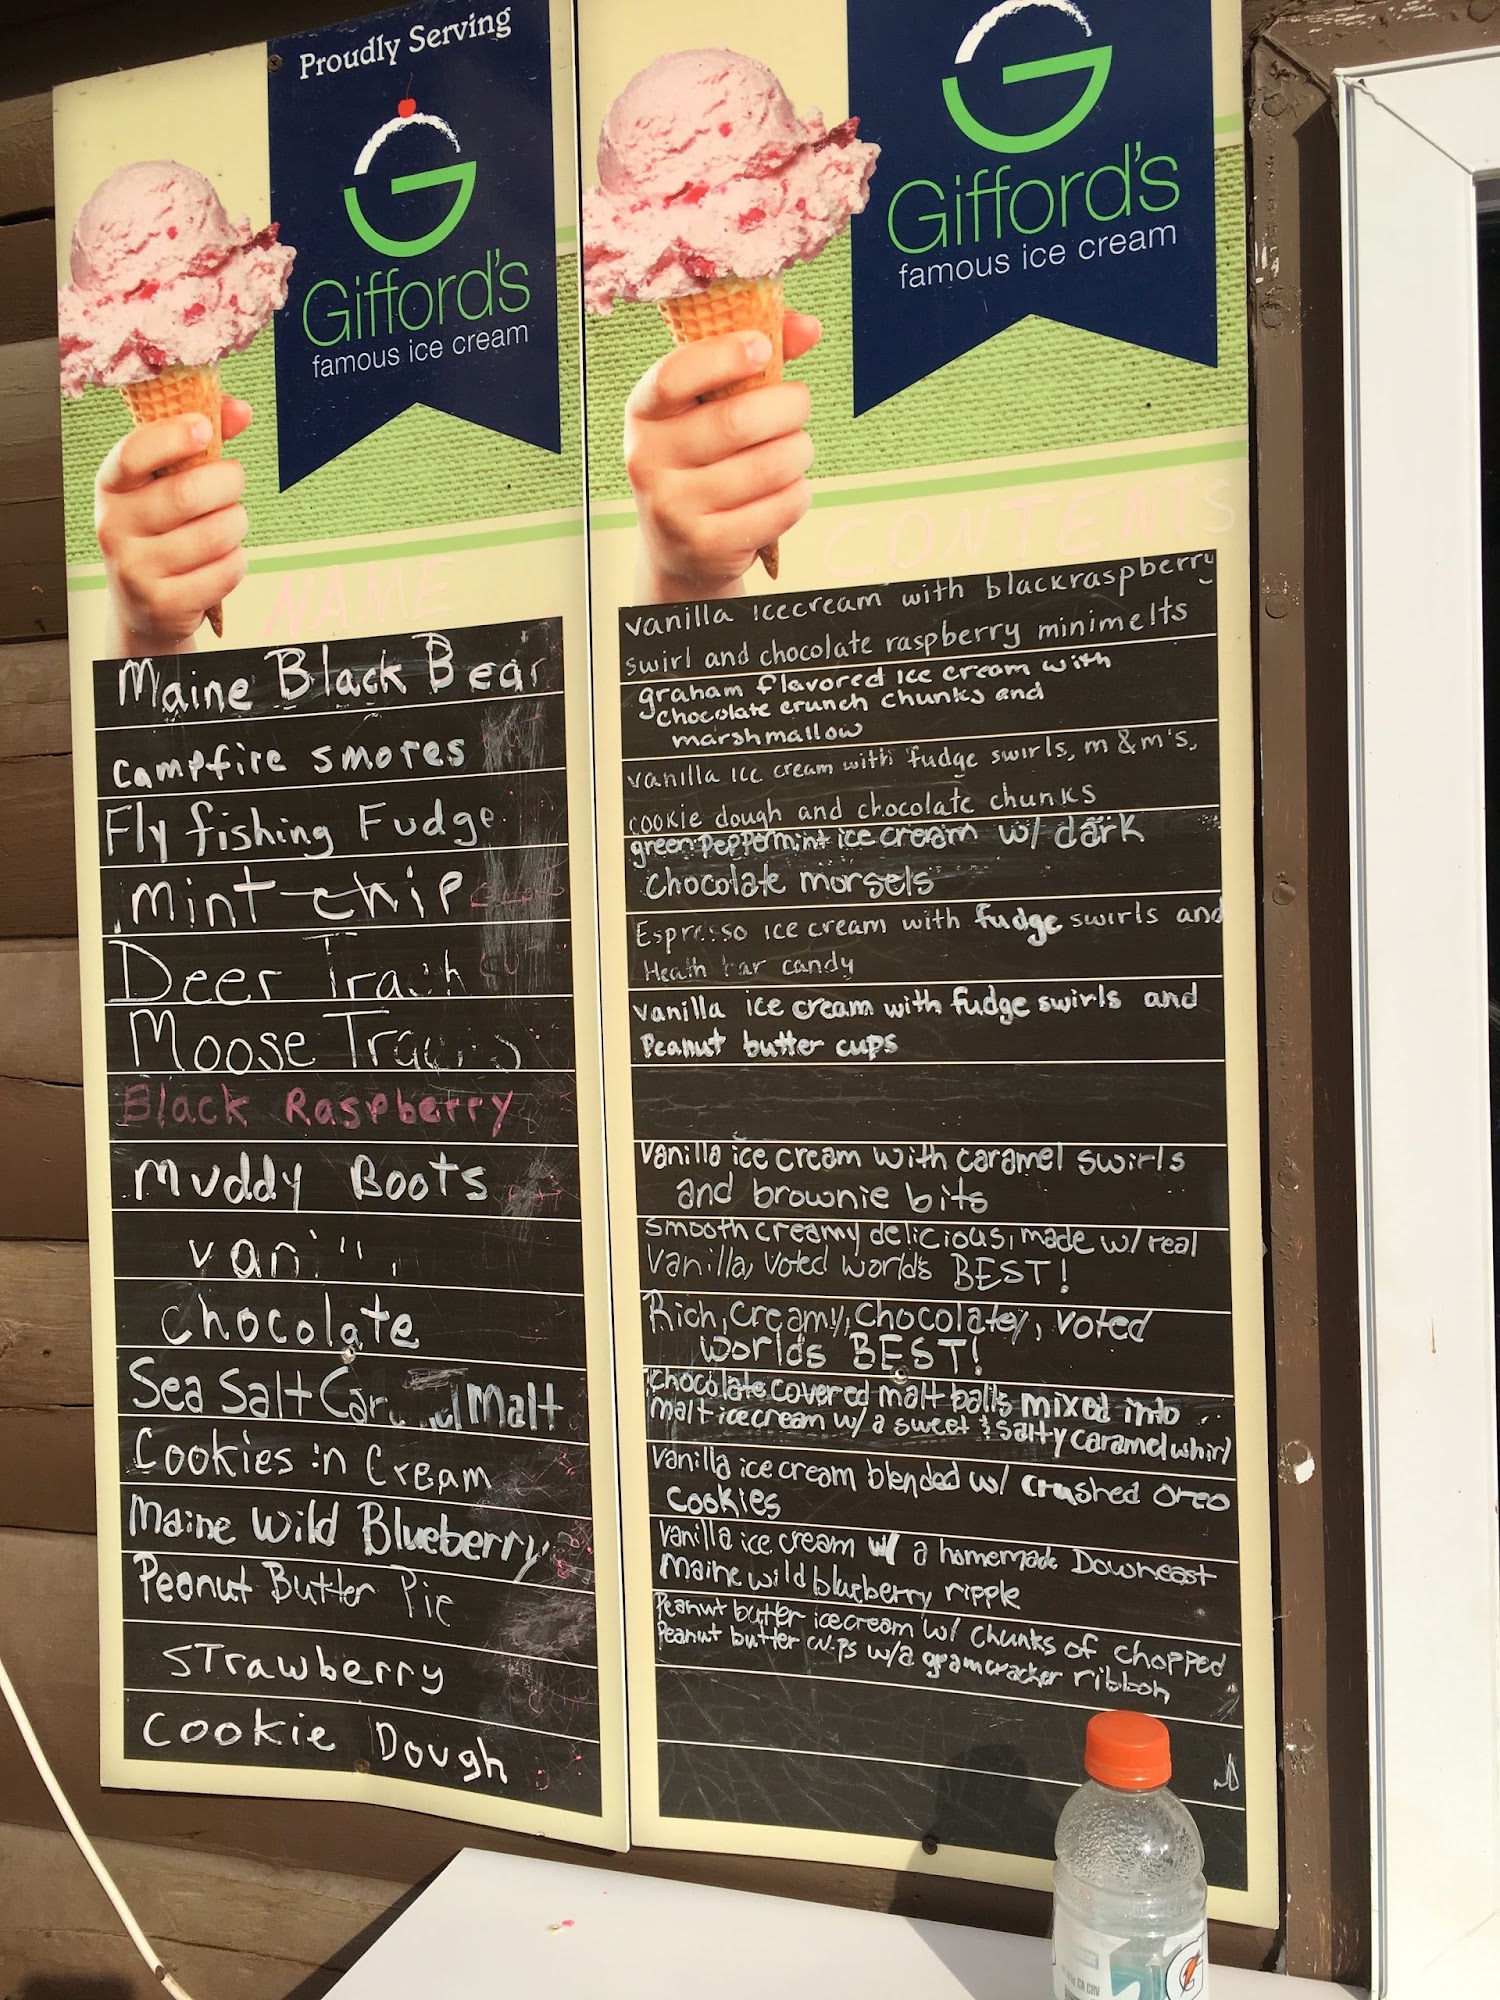 Proudly Serving
G
Gifford's
famous ice cream
NAME
Maine Black Bear
campfire smores
Fly fishing Fudge
mint chip
Deer
Moose
Black Raspberry
muddy Boots
chocolate
Sea Salt Malt
Cookies in Cream
Maine Wild Blueberry
Peanut Butter Pie
STrawberry
Cookie Dough
G
Gifford's
famous ice cream
CONTENTS
vanilla icecream with blackraspberry
swirl and chocolate raspberry minimelts
graham flavored ice cream with
chocolate crunch chunks and
marshmallow
vanilla ice cream with fudge swirls, m&m's,
cookie dough and chocolate chunks
green peppermint ice cream w/ dark
chocolate morsels
Espresso ice cream with fudge swirls and
Heath bar candy
vanilla ice cream with fudge swirls and
Peanut butter cups
Vanilla ice cream with caramel swirls
and brownie bits
Smooth creamy delicious, made w/ real
Vanilla, voted worlds BEST!
Rich, Creamy, Chocolatey, voted
worlds BEST!
chocolate covered malt balls mixed into
malt icecream w/ a sweet & salty caramel whirl
vanilla ice cream blended w/ crushed oreo
cookies
vanilla ice cream w/ a homemade Downeast
Maine wild blueberry ripple
Peanut butter icecream w/ chunks of chopped
Peanut butter cups w/a gramcracker ribbon
G